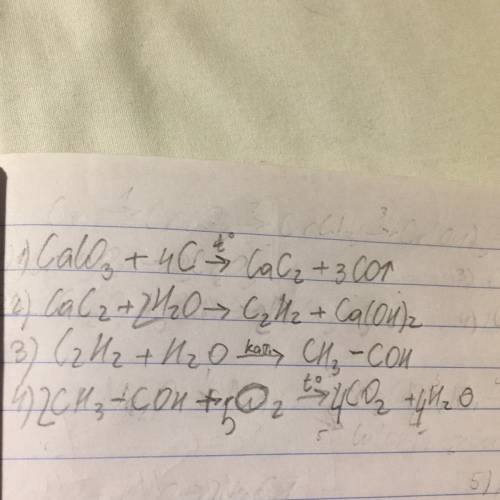 1) CaCO₃ + 4C →t° CaC₂ + 3CO↑
2) CaC₂ + 2H₂O → C₂H₂ + Ca(OH)₂
3) C₂H₂ + H₂O →кат. CH₃-COH
4) 2CH₃-COH + 5O₂ →t° 4CO₂ + 4H₂O
5)